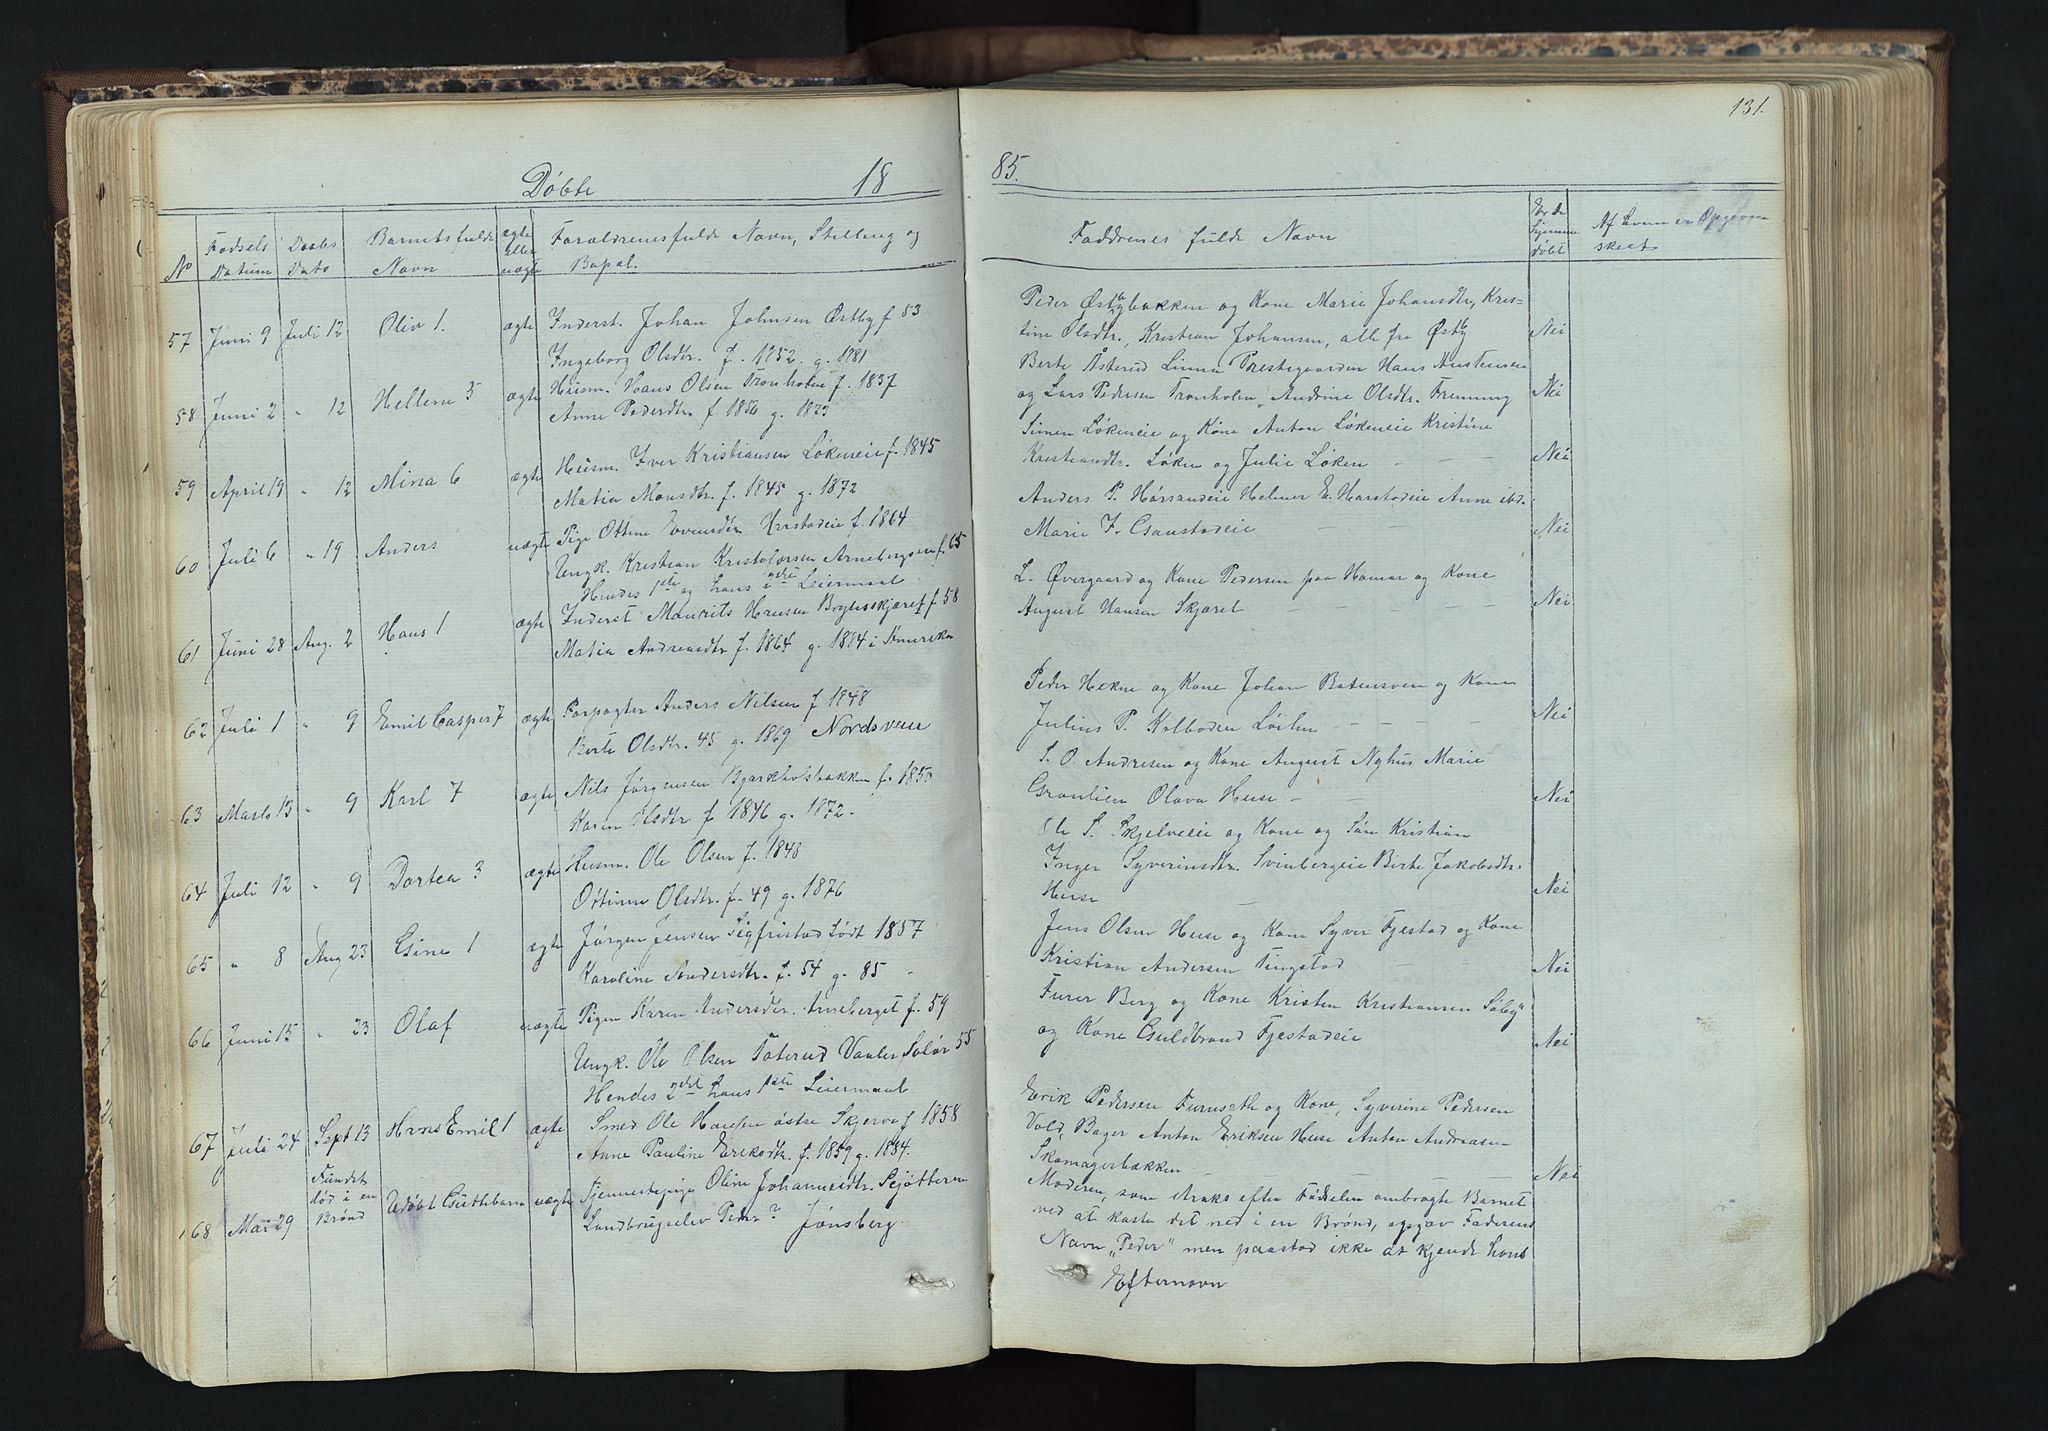 131.
Døbte 18 85.
No Fødsels Datum Daabs Dato Barnets fulde Navn ægte eller uægte Forældrenes fulde Navn, Stilling og Bopæl.
Faddrenes fulde Navn Er de hjemme døbt Af hvem er Opgaven skeet
57 Juni 9 Juli 12 Oliv 1. ægte Inderst. Johan Johnsen Østby f 53
Ingeborg Olsdtr. f. 1852. g. 1881
Peder Østbybakken og Kone Marie Johansdtr, Kris-
tine Olsdtr., Kristian Johansen, alle fra Østby Nei
58 Juni 2 " 12 Hellene 3 ægte Husm. Hans Olsen Tronholen f. 1837
Anne Pedersdtr f. 1850 g. 1873
Berte Åsterud Linna Prestegaarden Hans Austensen
og Lars Pedersen Tronholen Andrine Olsdtr. Frenning Nei
59 April 19 " 12 Mina 6 ægte Husm. Iver Kristiansen Løkeneie f. 1845
Matia Monsdtr. f. 1845 g. 1872
Simen Løkeneie og Kone Anton Løkeneie Kristine
Kristiandtr. Løken og Julie Løken - - - Nei
60 Juli 6 " 19 Anders uægte Pige Ottine Evensdtr Harstadeie f. 1864
Ungk. Kristian Kristofersen Arnebergseie f. 65
Hendes 1ste og hans 2det Leiermaal
Anders P. Horsandeie Helmer E. Harstadeie Anne ibd.
Marie F. Gaustadeie - Nei
61 Juni 28 Aug. 2 Hans 1 ægte Inderst Maurits Hansen Bryhnskjæret f 58
Matia Andreasdtr f. 1864 g. 1884 i Amerika
L. Øvergaard og Kone Pedersen paa Hamar og Kone
August Hansen Skjæret - - - Nei
62 Juli 1 " 9 Emil Casper 7 ægte Forpagter Anders Nilsen f 1848
Berte Olsdtr. 45 g. 1869 Nordsveen
Peder Hekne og Kone Johan Batensveen og Kone
Julius P. Kolboden Løiten - - - Nei
63 Marts 13 " 9 Karl 7 ægte Nils Jørgensen Bjørkholsbakken f. 1850
Karen Olsdtr f 1846 g. 1872.
S. O. Andresen og Kone August Nyhus Marie
Granlien Olava Huse - - Nei
64 Juli 12 " 9 Dortea 3 ægte Husm. Ole Olsen f. 1848
Ottinne Olsdtr. f. 49 g. 1876
Ole S. Skjelveeie og Kone og Søn Kristian
Inger Syverinsdtr. Svinbergeie Birte Jakobsdtr.
Huse - Nei
65 " 8 Aug 23 Gine 1 ægte Jørgen Jensen Sigfristad født 1857
Karoline Andersdtr. f. 54 g. 85 -
Jens Olsen Huse og Kone Syver Fjestad og Kone
Kristian Andersen Tingstad - Nei
66 Juni 15 " 23 Olaf uægte Pigen Karen Andersdtr. Arneberget f. 59
Ungk. Ole Olsen Toterud Vaaler Solør 55
Hendes 2det hans 1ste Leiermaal
Furer Berg og Kone Kristen Kristiansen Søby
og Kone Guldbrand Fjestadeie Nei
67 Juli 24 Sept 13 Hans Emil 1 ægte Smed Ole Hansen østre Skjerve f 1858
Anne Pauline Eriksdtr. f. 1859 g. 1884.
Erik Pedersen Furuseth og Kone, Syverine Pedersen
Vold, Bager Anton Eriksen Huse Anton Andreasen
Skomagerbakken - - Nei
68 Mai 29 Fundet død i en Brønd Udøbt Guttebarn uægte Tjennestepige Oline Johannesdtr. Sejøtteren
Landbrugselev Peder ? Jønsberg.
Moderen, som straks efter Fødselen ombragte Barnet
ved at kaste det ned i en Brønd, opgav Faderens
Navn „Peder" men paastod ikke at kjende hans
Efternavn